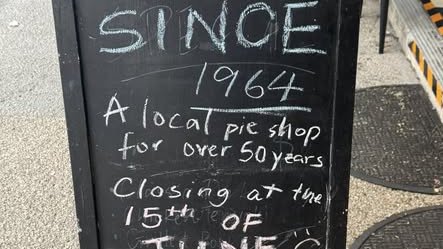 SINCE
1964
A local pie shop
for over 50 years
Closing at the
15th OF
JUNE